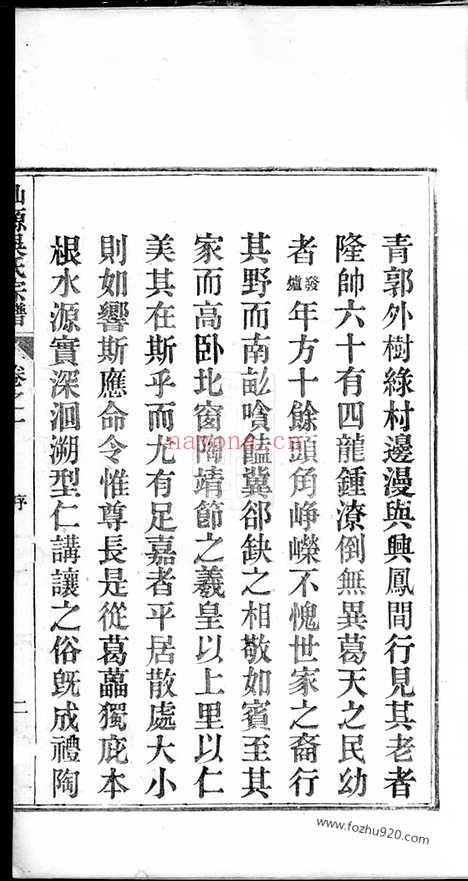 青郭外樹綠村邊漫與興鳳間行見其老者
隆帥六十有四龍鍾潦倒無異葛天之民幼
者發爐年方十餘頭角崢嶸不愧世家之裔行
其野而南畝喰饁冀郤缺之相敬如賓至其
家而高卧北窗陶靖節之羲皇以上里以仁
美其在斯乎而尤有足嘉者平居散處大小
則如響斯應命令惟尊長是從葛藟獨庇本
根水源實深洄溯型仁講讓之俗旣成禮陶
仙源吳氏宗譜 卷之一 序 二
nayona.cn
www.fozhu920.com